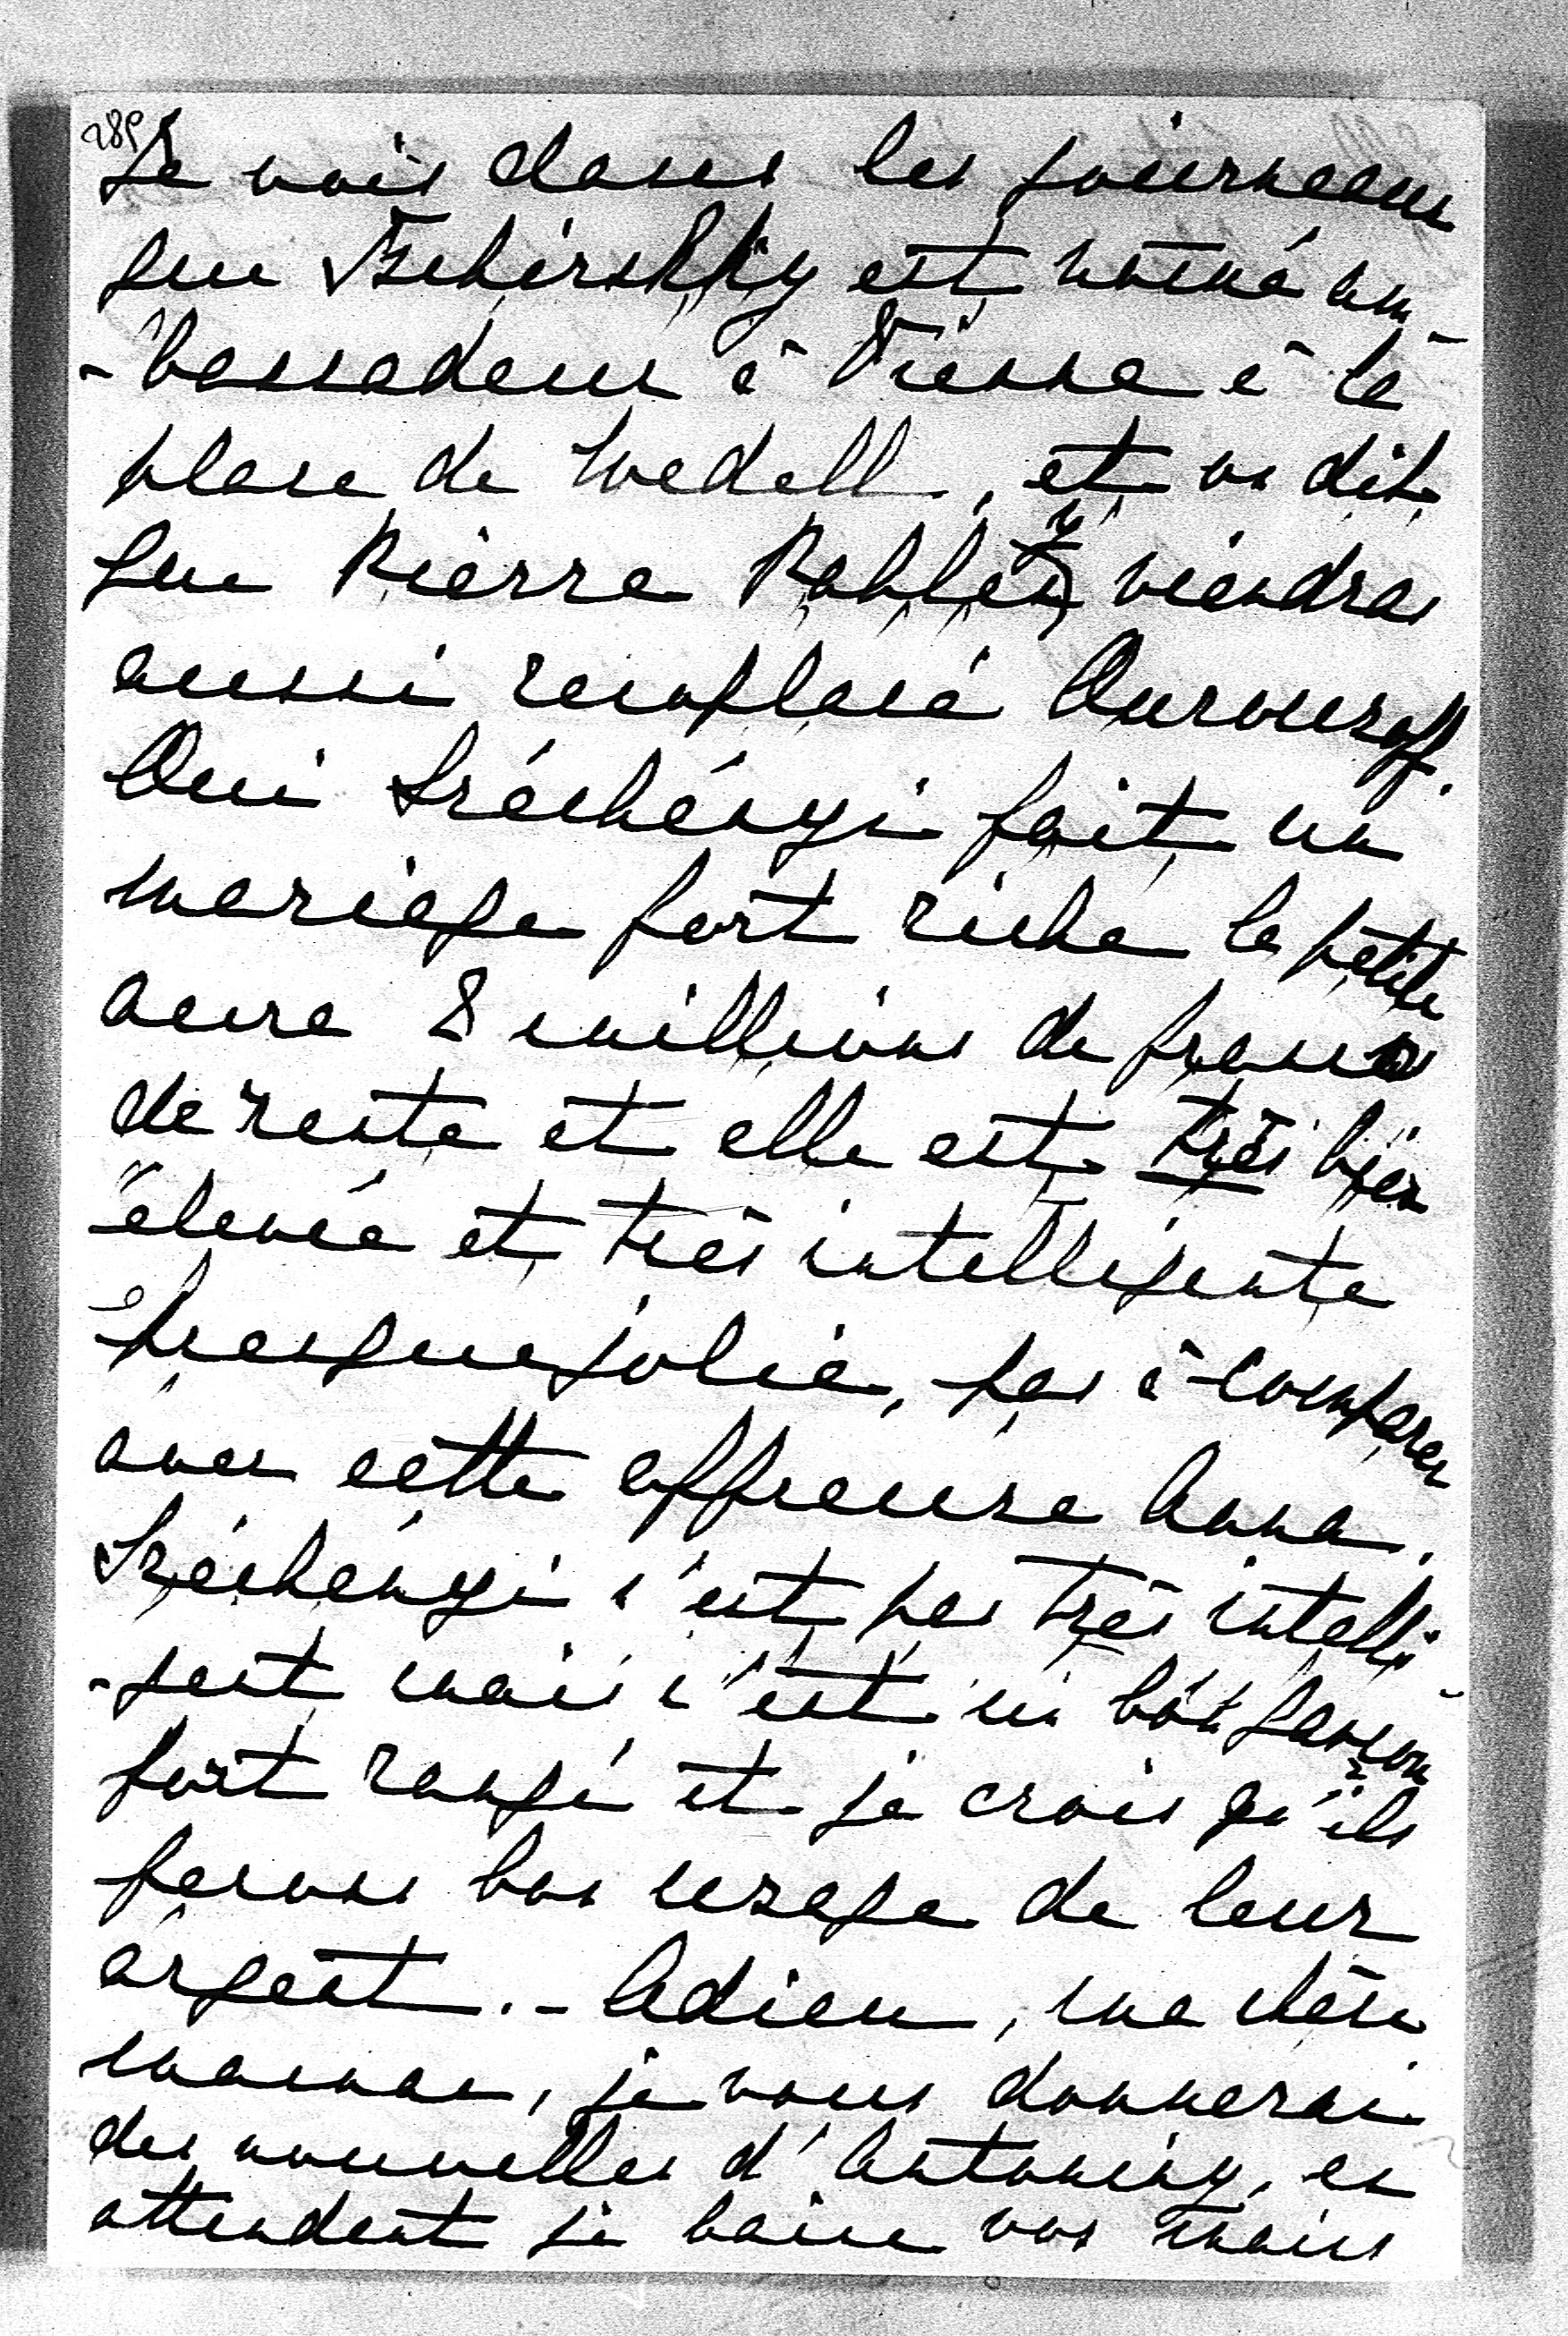 289
Je vois dans les journeaux
que Tschirschky est nomé am-
-bassadeur à Vienne à la
place de Wedell, et on dit
que Pierre viendra
aussi remplacé Ourousoff.
Oui Széchényi fait un
mariage fort riche la petite
aura 2 millions de francs
de rente et elle est très bien
élevée et très intelligente
presque jolie, pas à comparer
avec cette affreuse Anna.
Széchényi n'est pas très intelli-
-gent mais c'est un bon garçon
fort rangé et je crois qu'ils
ferons bon usage de leur
argent. - Adieu, ma chère
maman, je vous donnerai
des nouvelles d'Antoniny, en
attendant je baise vos mains